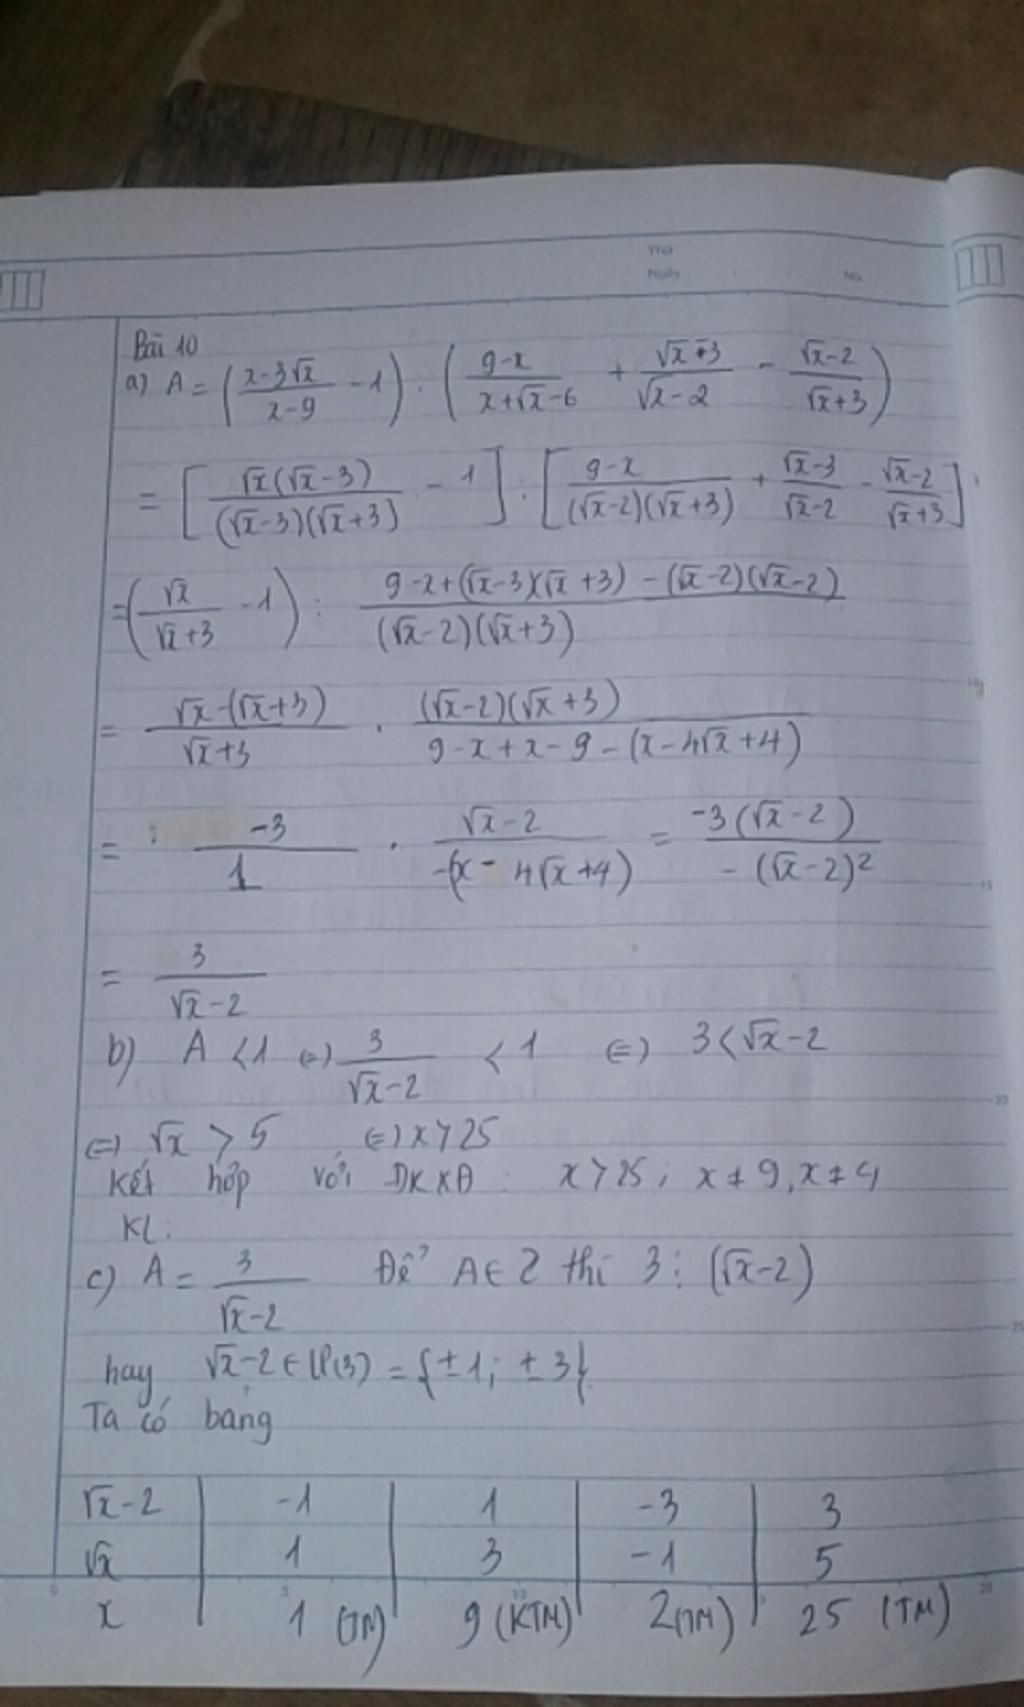 Thứ
Ngày No.
Bài 10
a) A = (x-3√x / x-9 - 1) : (9-x / x+√x-6 + √x+3 / √x-2 - √x-2 / √x+3)
= [√x(√x-3) / (√x-3)(√x+3) - 1] : [9-x / (√x-2)(√x+3) + √x-3 / √x-2 - √x-2 / √x+3]
= (√x / √x+3 - 1) : 9-x+(√x-3)(√x+3) - (√x-2)(√x-2) / (√x-2)(√x+3)
= √x-(√x+3) / √x+3 . (√x-2)(√x+3) / 9-x+x-9-(x-4√x+4)
= -3 / 1 . √x-2 / -(x-4√x+4) = -3(√x-2) / -(√x-2)²
= 3 / √x-2
b) A < 1 (=) 3 / √x-2 < 1 (=) 3 < √x-2
(=) √x > 5 (=) x > 25
Kết hợp với ĐKXĐ : x > 25 ; x ≠ 9, x ≠ 4
KL:
c) A = 3 / √x-2 Để A ∈ Z thì 3 ⋮ (√x-2)
hay √x-2 ∈ Ư(3) = {±1; ±3}
Ta có bảng
√x-2 | -1 | 1 | -3 | 3
√x | 1 | 3 | -1 | 5
x | 1 (TM) | 9 (KTM) | 2 (TM) | 25 (TM)